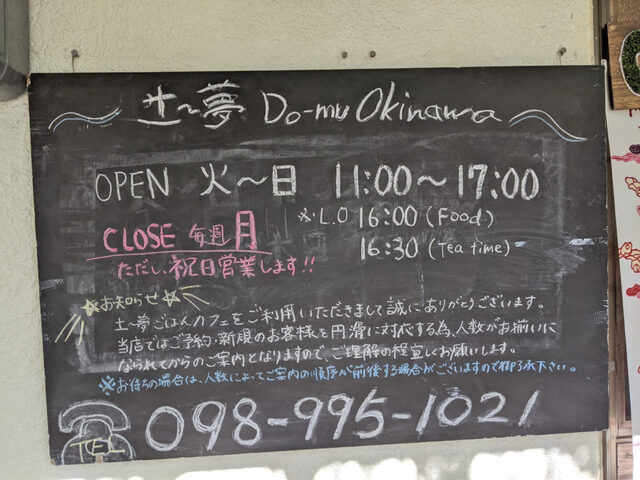 土〜夢 Do-mu Okinawa
OPEN 火〜日 11:00〜17:00
※L.O 16:00 (Food)
CLOSE 毎週月
16:30 (Tea time)
ただし、祝日営業します!!
☆お知らせ☆
土〜夢ごはんカフェをご利用いただきまして誠にありがとうございます。
当店ではご予約・新規のお客様を円滑に対応する為、人数がお揃いに
なられてからのご案内となりますので、ご理解の程宜しくお願いします。
※お待ちの場合は、人数によってご案内の順序が前後する場合がございますので御了承下さい。
TEL 098-995-1021